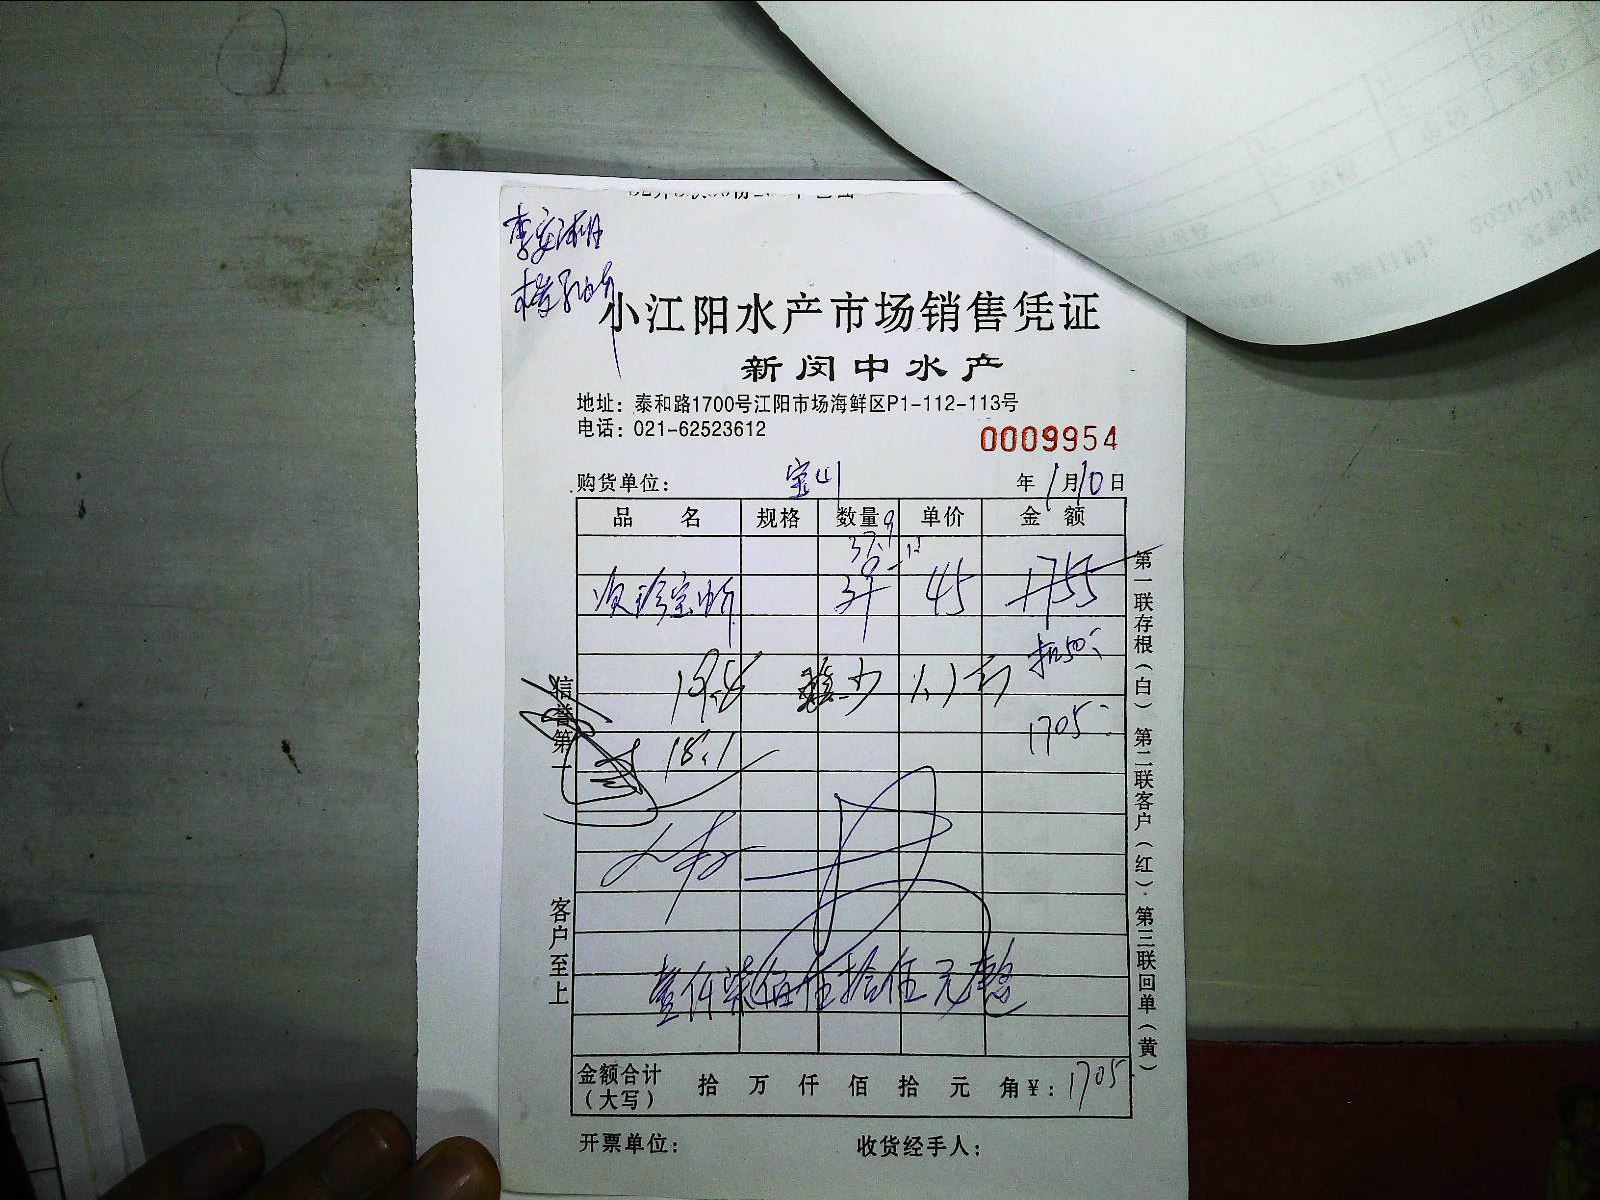 小江阳水产市场销售凭证
新闵中水产
地址：泰和路1700号江阳市场海鲜区P1-112-113号
电话：021-62523612
0009954
购货单位： 宝山 年 1 月 10 日
品 名 规格 数量 单价 金 额
37.9
45 1755
扣50
19.8 少 1.1斤
1705
18.1
壹仟柒佰 伍拾伍元整
金额合计（大写） 拾 万 仟 佰 拾 元 角 ￥：1705
开票单位： 收货经手人：
信誉第一
客户至上
第一联存根（白） 第二联客户（红） 第三联回单（黄）